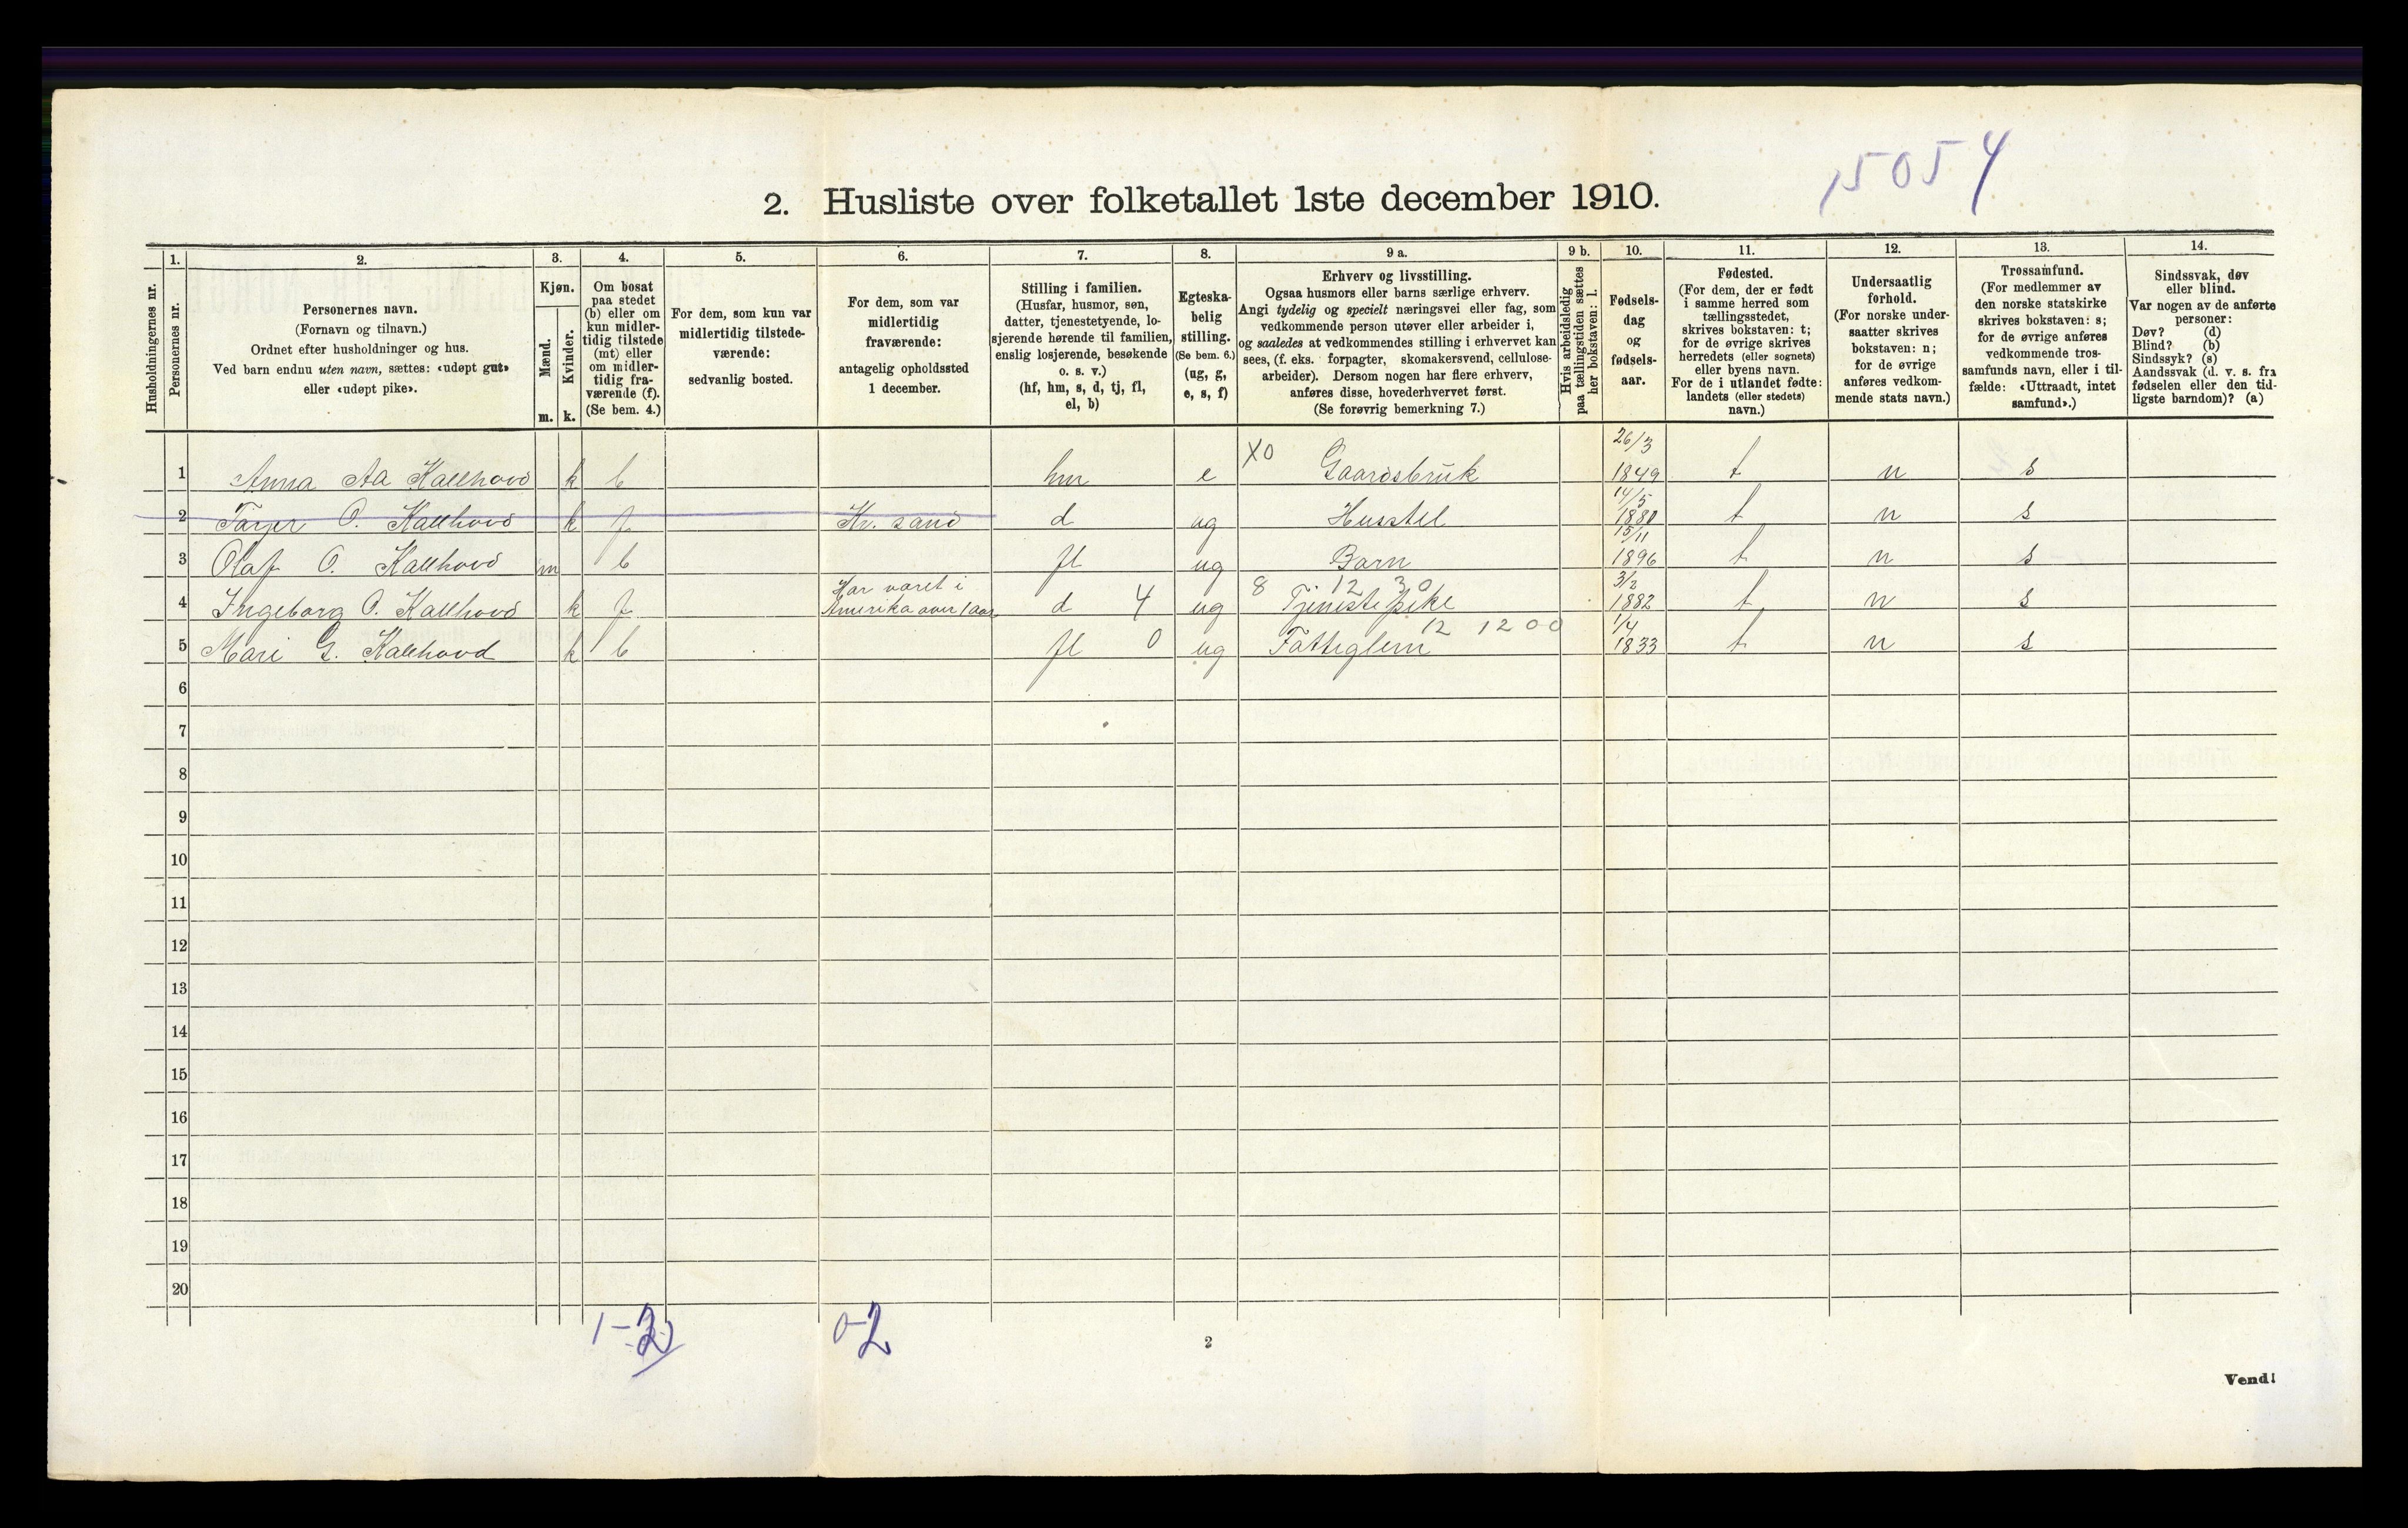 15054
2. Husliste over folketallet 1ste december 1910.
Husholdningernes nr.
1.
Personernes nr.
2.
Personernes navn.
(Fornavn og tilnavn.)
Ordnet efter husholdninger og hus.
Ved barn endnu uten navn, sættes: «udøpt gut»
eller «udøpt pike».
3.
Kjøn.
Mænd.
Kvinder.
m. k.
4.
Om bosat
paa stedet
(b) eller om
kun midler-
tidig tilstede
(mt) eller
om midler-
tidig fra-
værende (f).
(Se bem. 4.)
5.
For dem, som kun var
midlertidig tilstede-
værende:
sedvanlig bosted.
6.
For dem, som var
midlertidig
fraværende:
antagelig opholdssted
1 december.
7.
Stilling i familien.
(Husfar, husmor, søn,
datter, tjenestetyende, lo-
sjerende hørende til familien,
enslig losjerende, besøkende
o. s. v.)
(hf, hm, s, d, tj, fl,
el, b)
8.
Egteska-
belig
stilling.
(Se bem. 6.)
(ug, g,
e, s, f)
9 a.
Erhverv og livsstilling.
Ogsaa husmors eller barns særlige erhverv.
Angi tydelig og specielt næringsvei eller fag, som
vedkommende person utøver eller arbeider i,
og saaledes at vedkommendes stilling i erhvervet kan
sees, (f. eks. forpagter, skomakersvend, cellulose-
arbeider). Dersom nogen har flere erhverv,
anføres disse, hovederhvervet først.
(Se forøvrig bemerkning 7.)
9 b.
Hvis arbeidsledig
paa tællingstiden sættes
her bokstaven: l.
10.
Fødsels-
dag
og
fødsels-
aar.
11.
Fødested.
(For dem, der er født
i samme herred som
tællingsstedet,
skrives bokstaven: t;
for de øvrige skrives
herredets (eller sognets)
eller byens navn.
For de i utlandet fødte:
landets (eller stedets)
navn.)
12.
Undersaatlig
forhold.
(For norske under-
saatter skrives
bokstaven: n;
for de øvrige
anføres vedkom-
mende stats navn.)
13.
Trossamfund.
(For medlemmer av
den norske statskirke
skrives bokstaven: s;
for de øvrige anføres
vedkommende tros-
samfunds navn, eller i til-
fælde: «Uttraadt, intet
samfund».)
14.
Sindssvak, døv
eller blind.
Var nogen av de anførte
personer:
Døv? (d)
Blind? (b)
Sindssyk? (s)
Aandssvak (d. v. s. fra
fødselen eller den tid-
ligste barndom)? (a)
1 Anna Aa Kallhovd k b hm e X0 Gaardsbruk 26/3 1849 t n s
2 O. Kallhovd k f Kr. sand d ug Husstel 14/5 1880 t n s
3 Olaf O. Kallhovd m b fl ug Barn 15/11 1896 t n s
4 Ingeborg O. Kallhovd k f Har været i
Amerika over 1 aar d 4 ug 8 12 30 Tjenestepike 3/2 1882 t n s
5 Mari G. Kallhovd k b fl 0 ug Fattiglem 12 1200 1/4 1833 t n s
6
7
8
9
10
11
12
13
14
15
16
17
18
19
20
1-2 0-2
2
Vend!